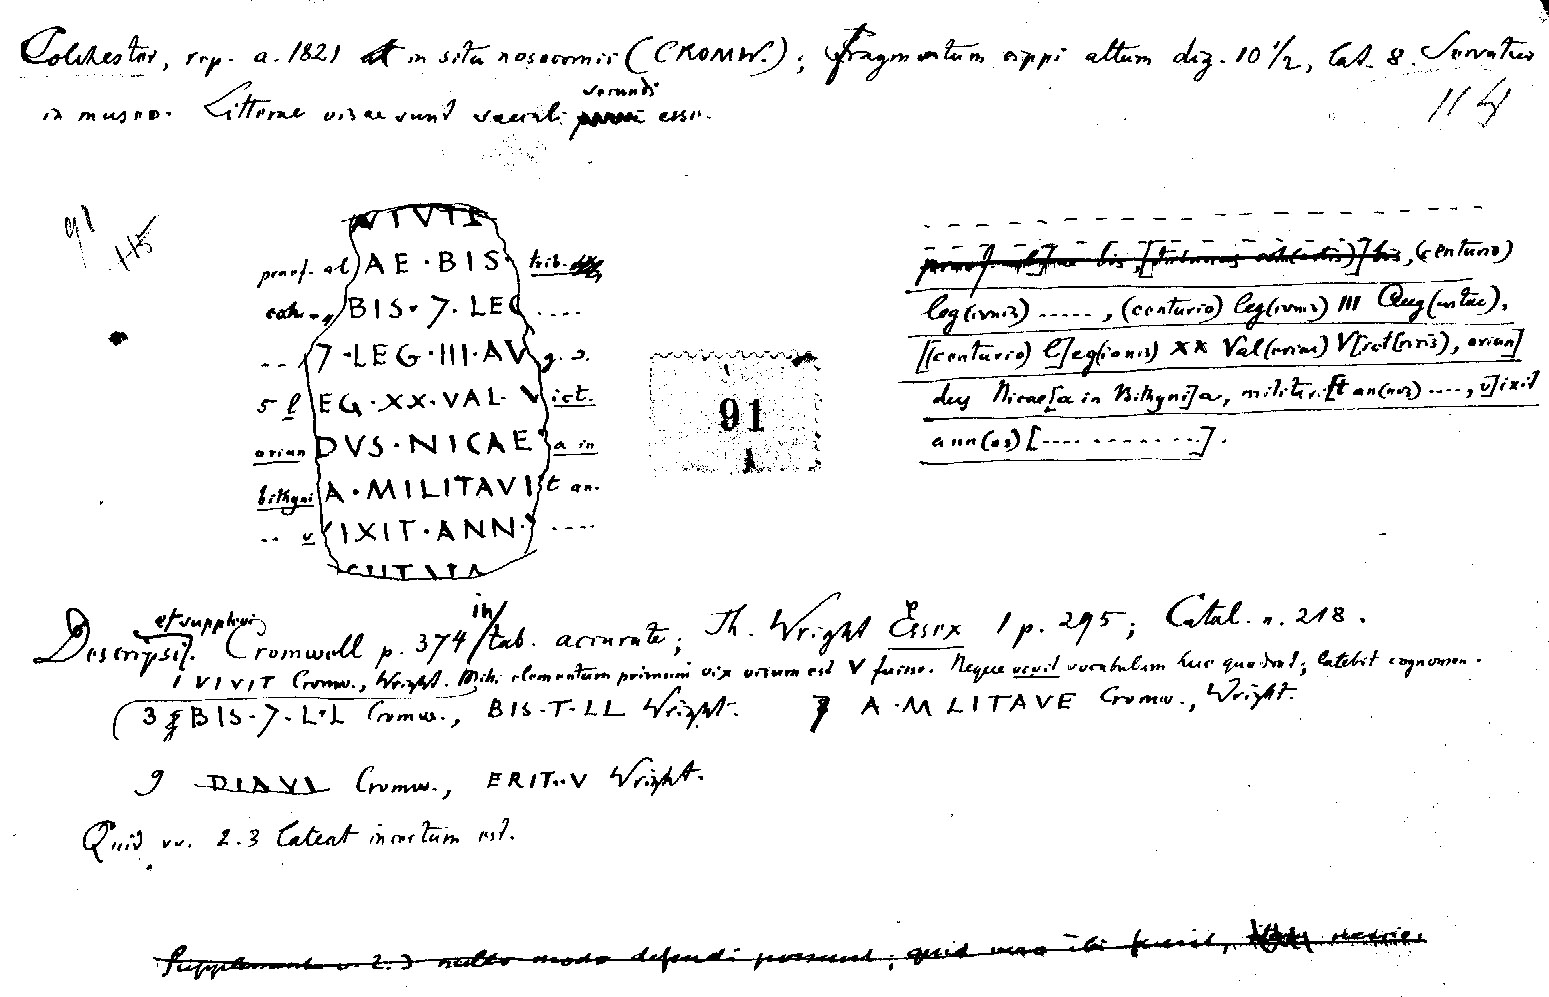 Colchester, rep. a. 1821 in situ nosocomii (CROMW.); Fragmentum cippi altum dig. 10 1/2, lat. 8. Servatur
in museo. Litterae visae sunt saeculi secundi esse.
114
91
115
VIVIT
praef. al AE · BIS · trib.
coh. BIS · 7 · LEG ....
... 7 · LEG · III · AV g. ɔ.
5 l EG · XX · VAL · V ict.
oriun DVS · NICAE a in
bithyni A · MILITAVI t an.
.. v IXIT · ANN · ....
91
praef. al]ae bis, [tribunus coh(ortis)] bis, (centurio)
leg(ionis) ....., (centurio) leg(ionis) III Aug(ustae),
[(centurio) l]eg(ionis) XX Val(eriae) V[ict(ricis), oriun]
dus Nicae[a in Bithyni]a, militavi[t an(nos) ...., v]ixit
ann(os) [.............].
Descripsi et supplevi. Cromwell p. 374 in tab. accurate; Th. Wright Essex 1 p. 295; Catal. n. 218.
1 VIVIT Cromw., Wright. Mihi elementum primum vix visum est V fuisse. Neque vivit vocabulum huc quadrat; latebit cognomen.
3 BIS · 7 · L · L Cromw., BIS · T · LL Wright. 7 A · M LITAVE Cromw., Wright.
9 DIAVI Cromw., ERIT · V Wright.
Quid vv. 2.3 lateat incertum est.
Supplementa v. 2.3 nullo modo defendi possunt; quid vero ibi fuerit,